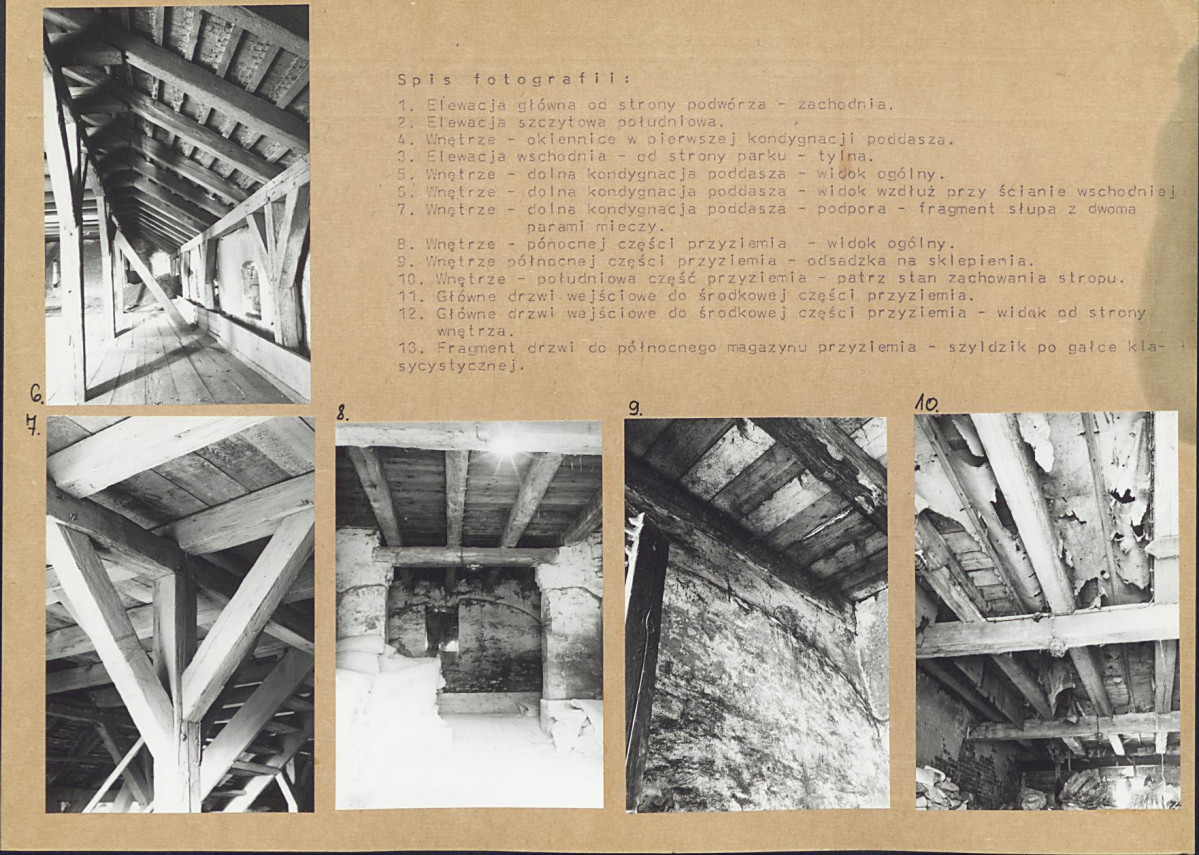 Spis fotografii:
1. Elewacja główna od strony podwórza - zachodnia.
2. Elewacja szczytowa południowa.
4. Wnętrze - okiennice w pierwszej kondygnacji poddasza.
3. Elewacja wschodnia - od strony parku - tylna.
5. Wnętrze - dolna kondygnacja poddasza - widok ogólny.
6. Wnętrze - dolna kondygnacja poddasza - widok wzdłuż przy ścianie wschodniej
7. Wnętrze - dolna kondygnacja poddasza - podpora - fragment słupa z dwoma
parami mieczy.
8. Wnętrze - pónocnej części przyziemia - widok ogólny.
9. Wnętrze północnej części przyziemia - odsadzka na sklepienia.
10. Wnętrze - południowa część przyziemia - patrz stan zachowania stropu.
11. Główne drzwi wejściowe do środkowej części przyziemia.
12. Główne drzwi wejściowe do środkowej części przyziemia - widok od strony
wnętrza.
13. Fragment drzwi do północnego magazynu przyziemia - szyldzik po gałce kla-
sycystycznej.
6.
7.
8.
9.
10.